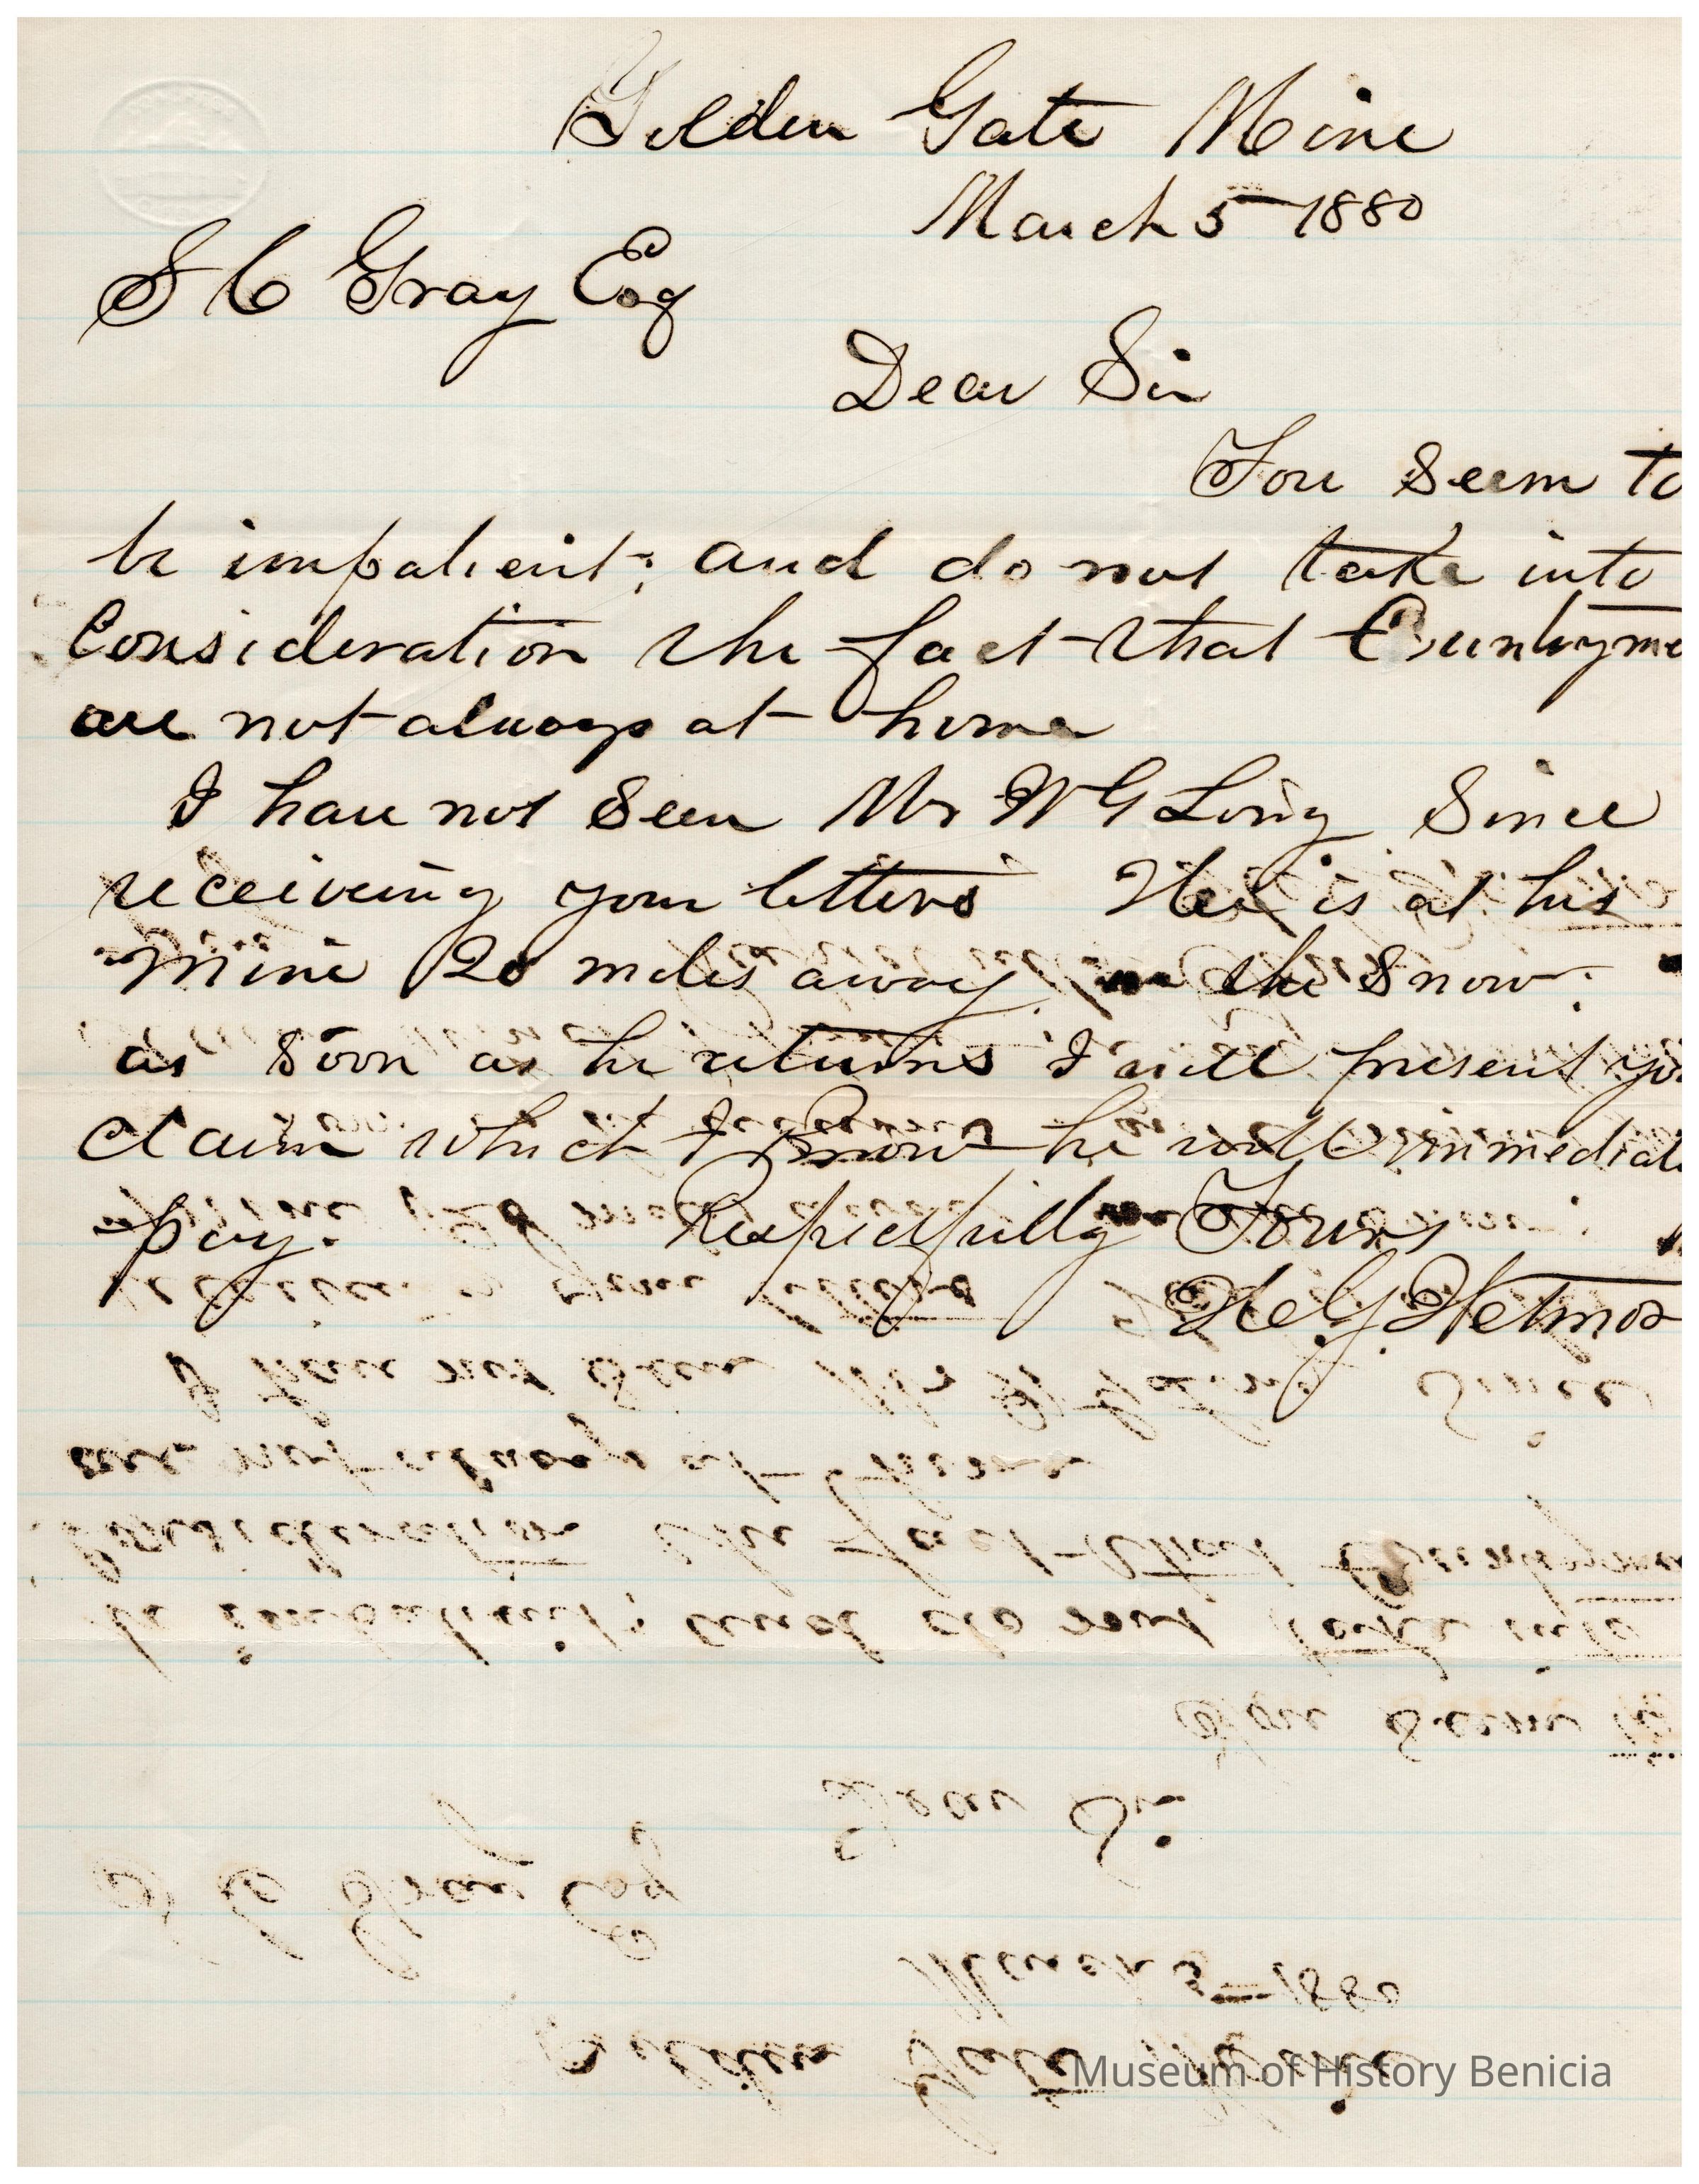 Golden Gate Mine
March 5 1880
S C Gray Esq
Dear Sir
You seem to
be impatient; and do not take into
Consideration the fact that Cuntryme
are not always at home
I have not Seen Mr W G Long Since
receiving your letters He is at his
Mine 20 miles away in the Snow:
as Soon as he returns I will present yo
claim which I know he will immediat
pay. Respectfully Yours
Wetmor
Museum of History Benicia